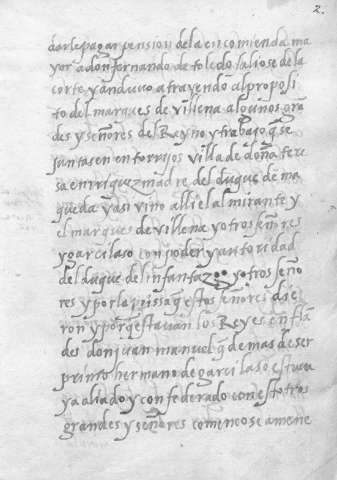 2.
darle pagar pensiosi dela encomienda ma
yor a don fernando de toledo saliose dela
corte y anduvo atrayendo al proposi
to del marques de villena algunos gra
des y señores del Reyno y trabajo q̄ se
juntasen en torrijos villa de doña tere
sa enrriquez madre del duque de ma
queda y asi vino alli el almirante y
el marques de villena y otros señores
y garcilaso con poder y autoridad
del duque del infantazgo y otros seño
res y por la prissa q̄ estos señores die
ron y porq̄ estavan los Reyes en flā
des don juan manuel q̄ demas de ser
primo hermano de garcilaso estava
ya aliado y confederado con estotros
grandes y señores comencose a mene